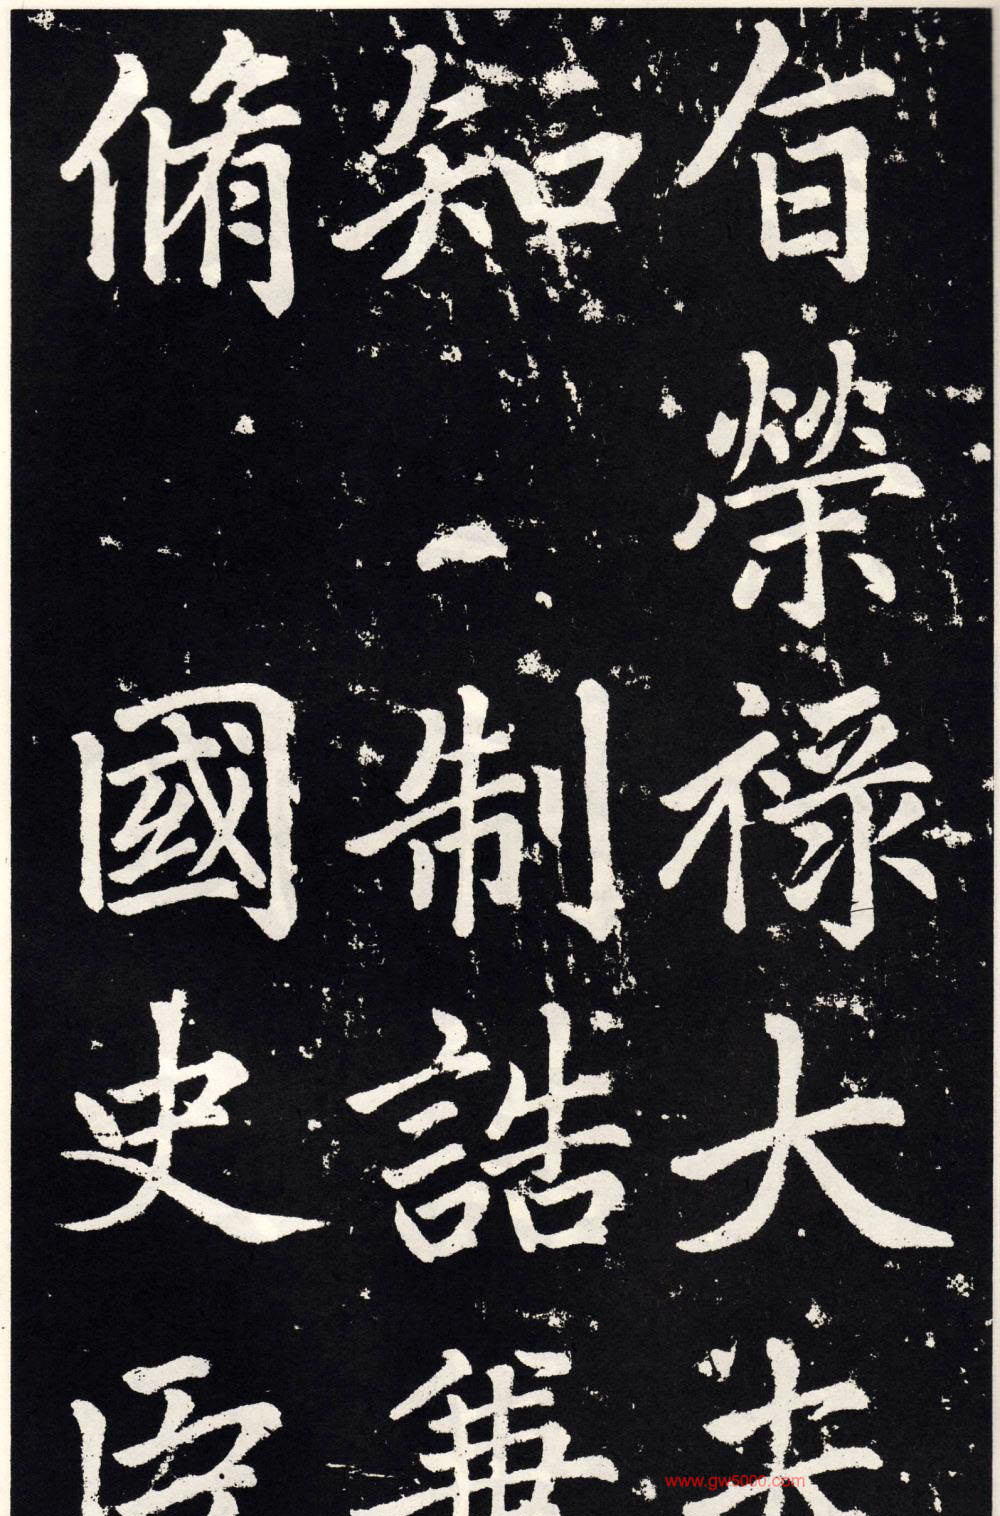 旨榮祿大夫
知制誥兼
脩國史臣
www.gw5000.com